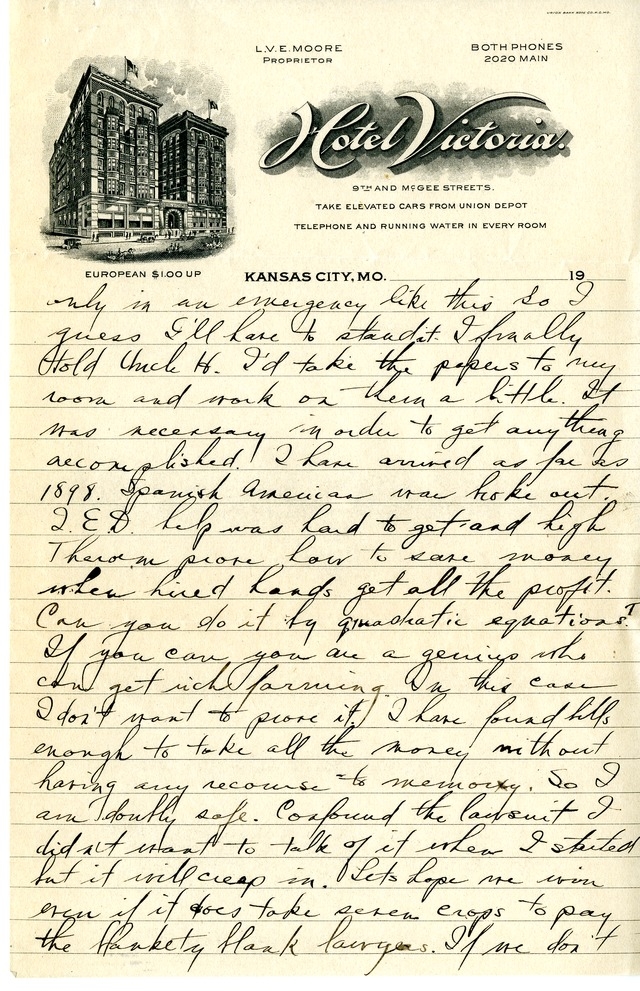 UNION BANK NOTE CO. K.C. MO.
L.V.E. MOORE
PROPRIETOR
BOTH PHONES
2020 MAIN
Hotel Victoria.
9TH AND McGEE STREETS.
TAKE ELEVATED CARS FROM UNION DEPOT
TELEPHONE AND RUNNING WATER IN EVERY ROOM
EUROPEAN $1.00 UP
KANSAS CITY, MO. 19
only in an emergency like this so I
guess I'll have to stand it. I finally
told Uncle H. I'd take the papers to my
room and work on them a little. It
was necessary in order to get anything
accomplished. I have arrived as far as
1898. Spanish American war broke out.
Q.E.D. help was hard to get and high
Theorem prove how to save money
when hired hands get all the profit.
Can you do it by quadratic equations?
If you can you are a genius who
can get rich farming. In this case
I don't want to prove it. I have found bills
enough to take all the money without
having any recourse to memory. So I
am doubly safe. Confound the lawsuit I
didn't want to talk of it when I started
but it will creep in. Lets hope we win
even if it does take seven crops to pay
the blankety blank lawyers. If we don't